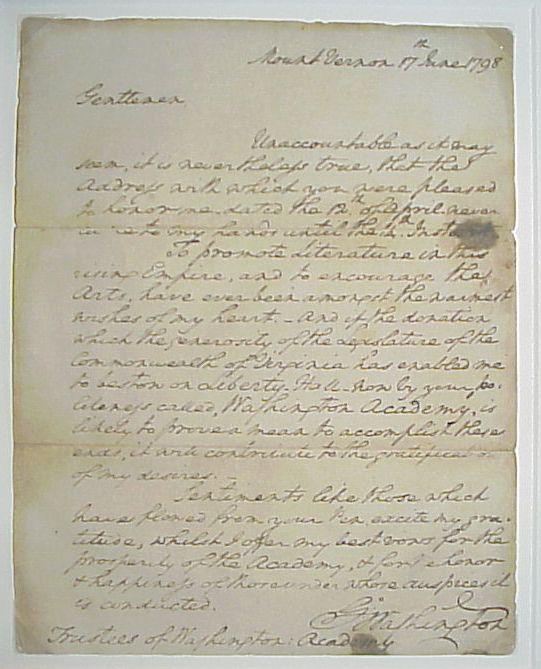 Mount Vernon 17th June 1798
Gentlemen,
Unaccountable as it may
seem, it is nevertheless true, that the
Address with which you were pleased
to honor me, dated the 12th of April never
came to my hands until the 14th Instant
To promote literature in this
rising Empire, and to encourage the
Arts, have ever been amongst the warmest
wishes of my heart. – And if the donation
which the generosity of the Legislature of the
Commonwealth of Virginia has enabled me
to bestow on Liberty-Hall – now by your po-
liteness called, Washington Academy, is
likely to prove a mean to accomplish these
ends, it will contribute to the gratification
of my desires. –
Sentiments like those which
have flowed from your Pen excite my gra-
titude, whilst I offer my best vows for the
prosperity of the Academy, & for the honor
& happiness of those under whose auspices it
is conducted.
Go: Washington
Trustees of Washington: Academy